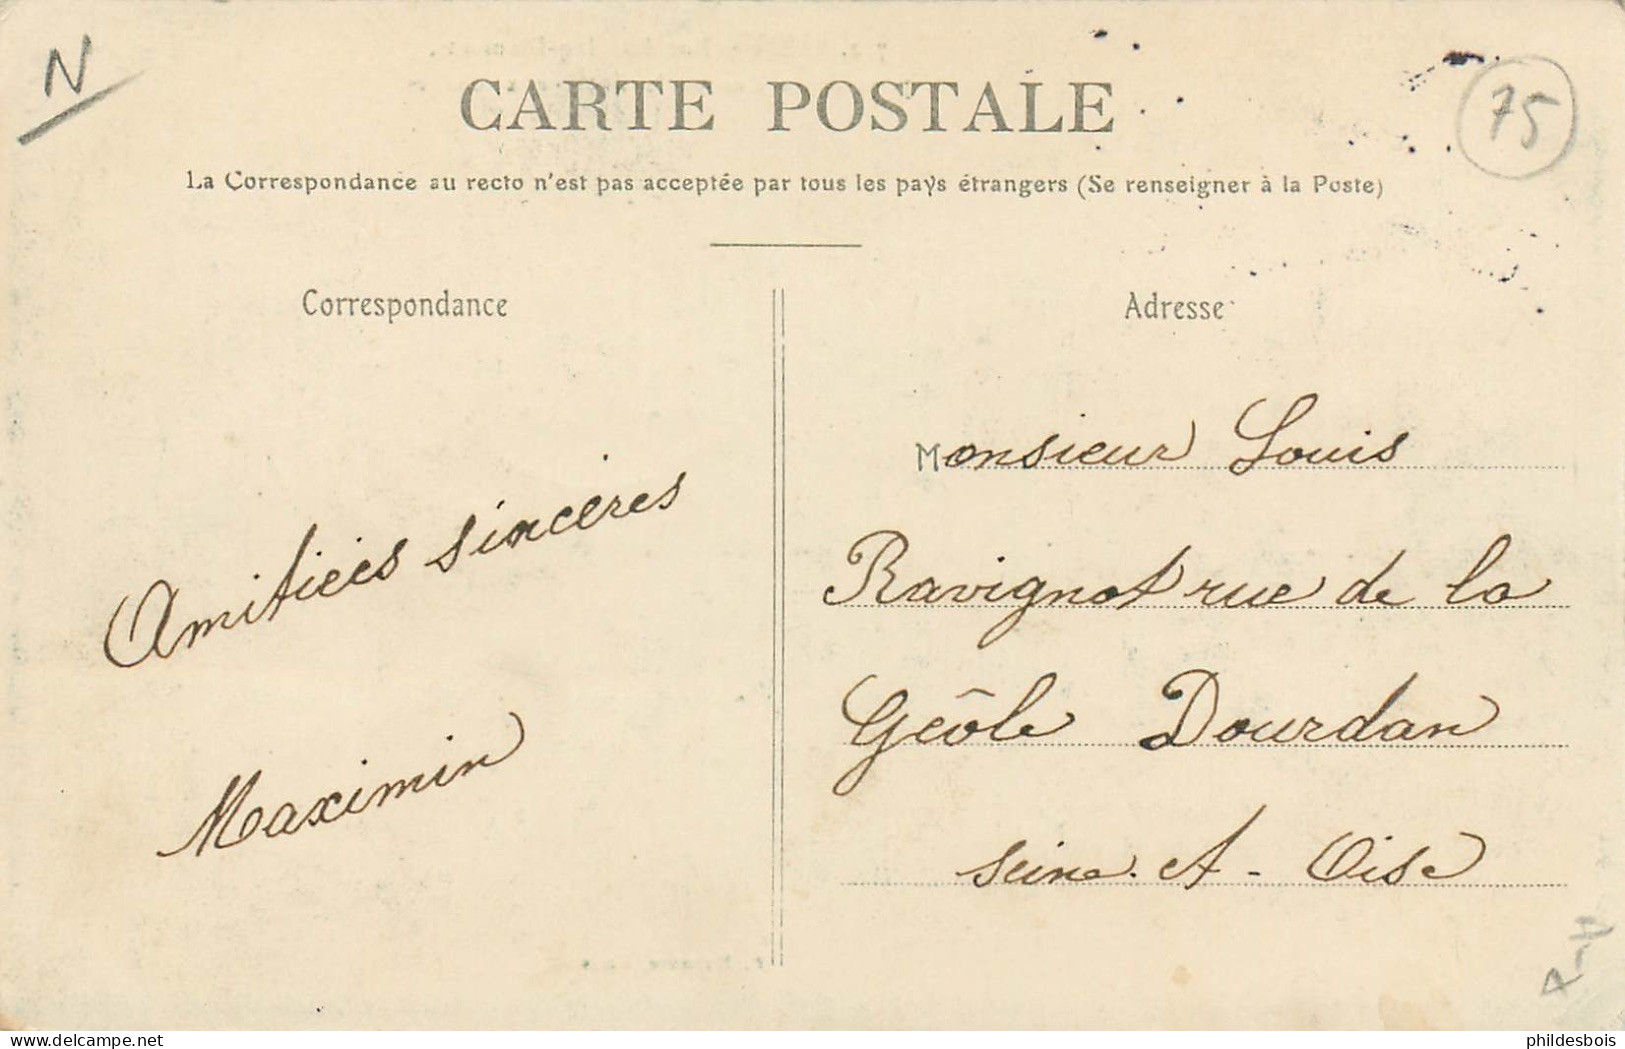 N
CARTE POSTALE
75
La Correspondance au recto n'est pas acceptée par tous les pays étrangers (Se renseigner à la Poste)
Correspondance
Amitiées sincères
Maximin
Adresse
Monsieur Louis
Ravignot rue de la
Geôle Dourdan
Seine. et - Oise
delcampe.net
phildesbois